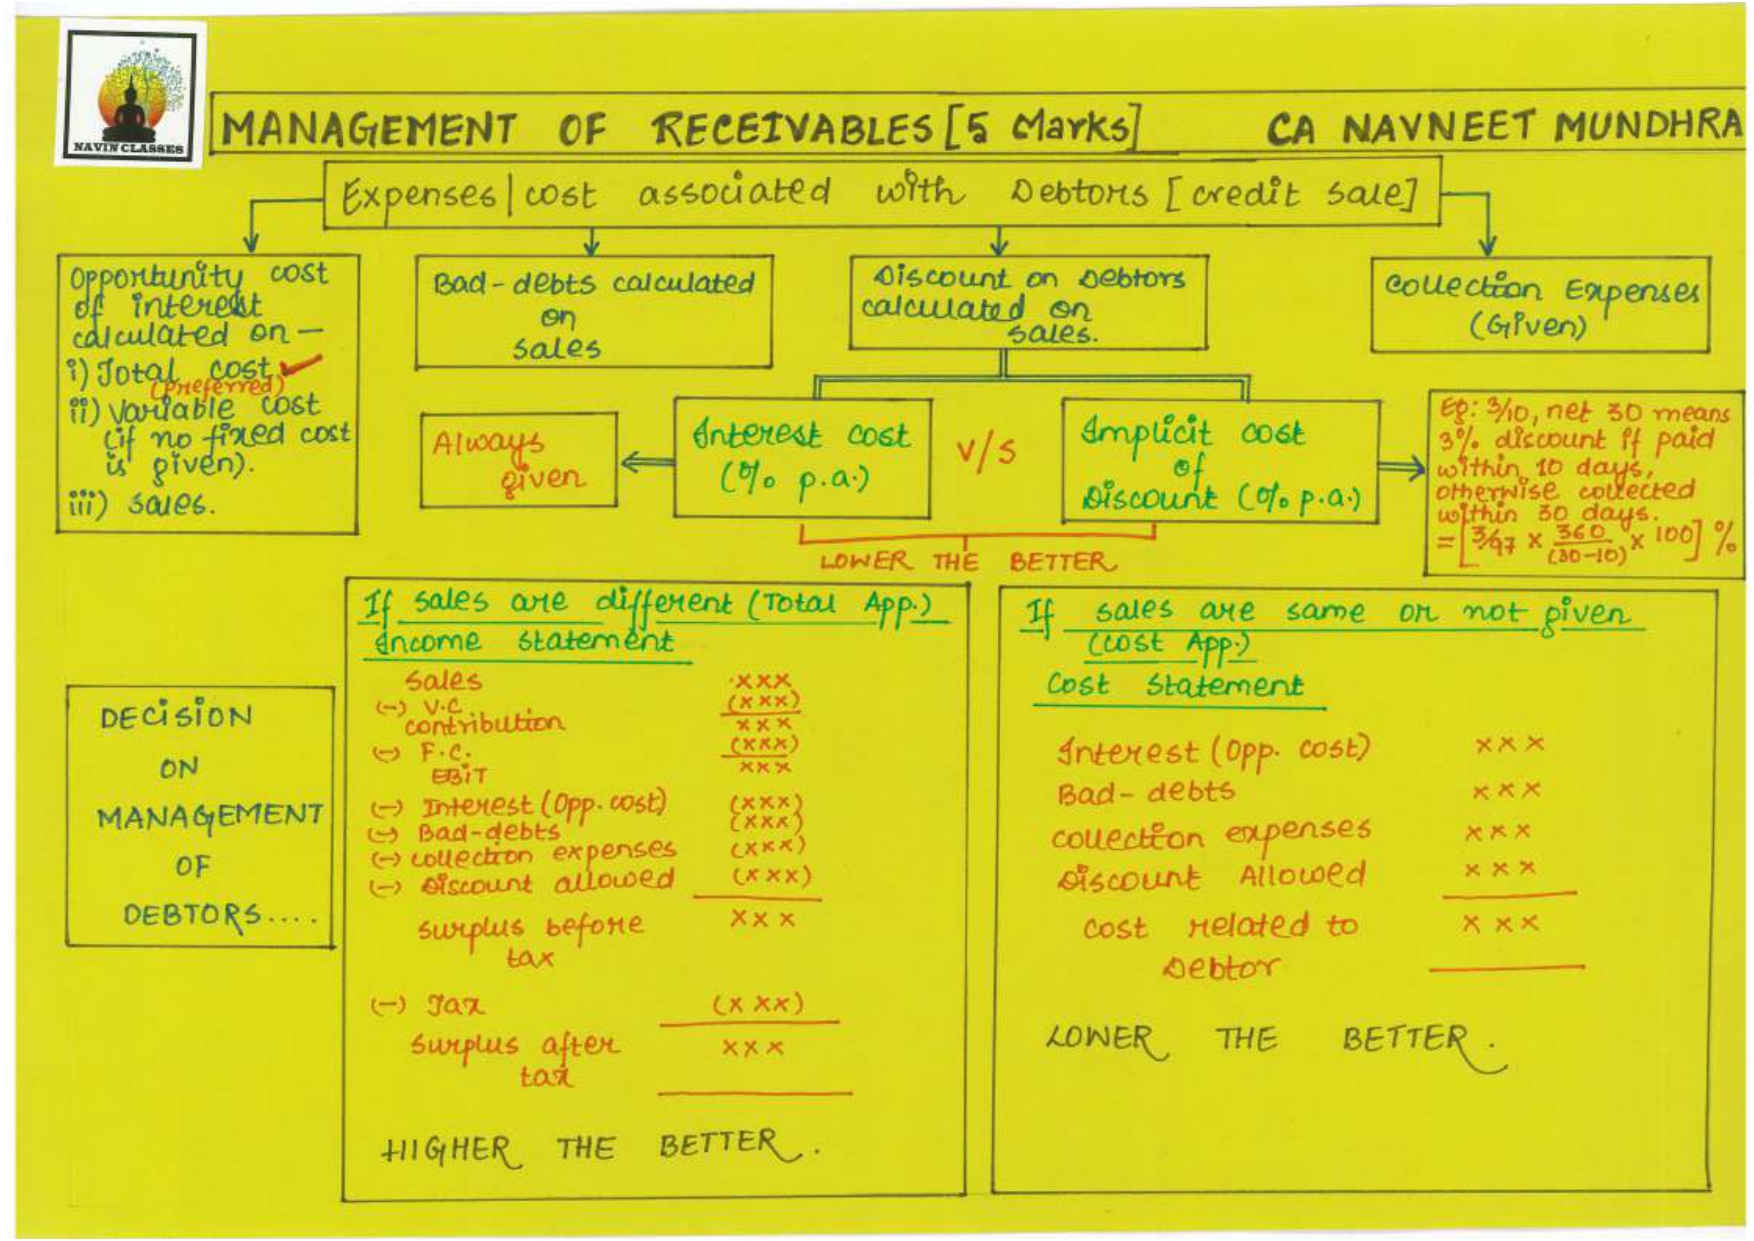 NAVIN CLASSES
MANAGEMENT OF RECEIVABLES [5 Marks] CA NAVNEET MUNDHRA
Expenses | cost associated with Debtors [credit sale]
Opportunity cost
of interest
calculated on —
i) Total cost ✓
(preferred)
ii) variable cost
(if no fixed cost
is given).
iii) sales.
Bad-debts calculated
on
sales
Discount on Debtors
calculated on
sales.
collection Expenses
(Given)
Always
given
Interest cost
(% p.a.)
V/S
Implicit cost
of
Discount (% p.a.)
LOWER THE BETTER
Eg: 3/10, net 30 means
3% discount if paid
within 10 days,
otherwise collected
within 30 days.
= [3/97 × 360/(30-10) × 100] %
DECISION
ON
MANAGEMENT
OF
DEBTORS....
If sales are different (Total App.)
Income statement
Sales xxx
(-) V.C (xxx)
contribution xxx
(-) F.C. (xxx)
EBIT xxx
(-) Interest (Opp. cost) (xxx)
(-) Bad-debts (xxx)
(-) collection expenses (xxx)
(-) Discount allowed (xxx)
surplus before xxx
tax
(-) Tax (xxx)
surplus after xxx
tax
HIGHER THE BETTER.
If sales are same or not given
(cost App.)
Cost statement
Interest (Opp. cost) xxx
Bad-debts xxx
collection expenses xxx
Discount Allowed xxx
cost related to xxx
Debtor
LOWER THE BETTER.